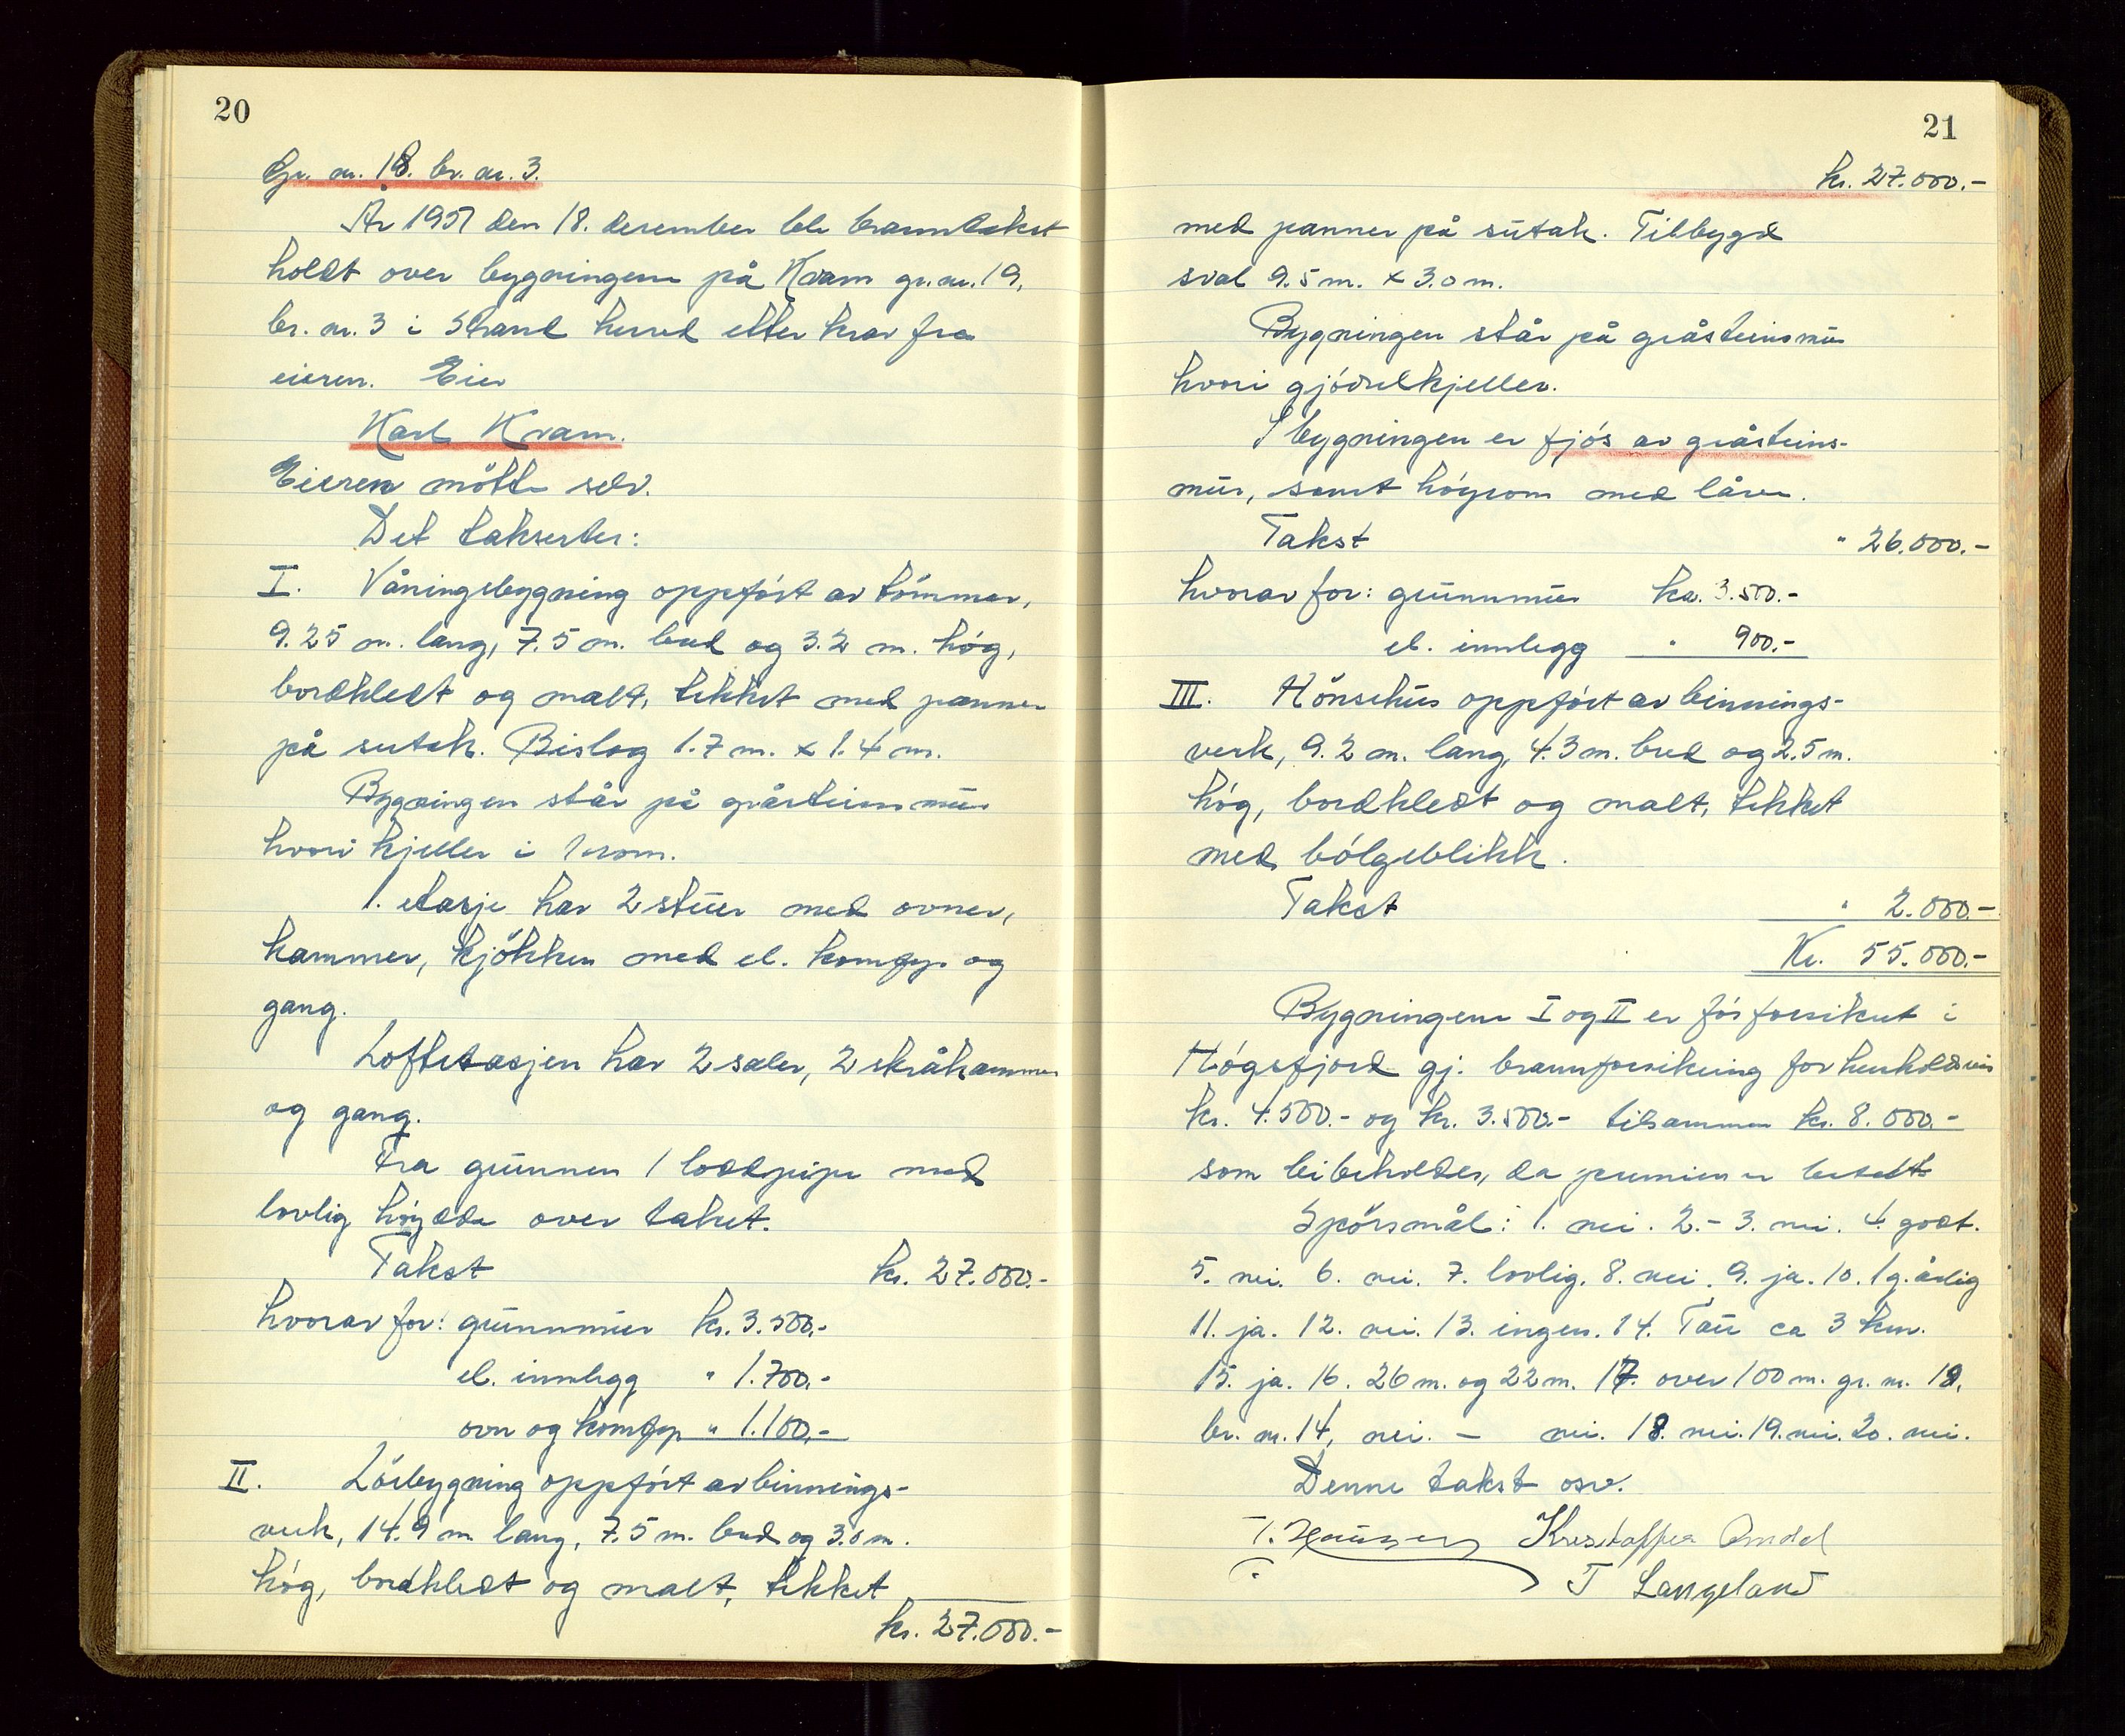 20
Gr. nr. 18. br. nr. 3.
År 1951 den 18. desember ble branntakst
holdt over bygningene på Kvam gr. nr. 19,
br. nr. 3 i Strand herred etter krav fra
eieren. Eier
Karl Kvam.
Eieren mötte selv.
Det taksertes:
I. Våningsbygning oppfört av tömmer,
9.25 m. lang, 7.5 m. bred og 3.2 m. hög,
bordkledt og malt, tekket med panner
på sutak. Bislag 1.7 m. x 1.4 m.
Bygningen står på gråsteinsmur
hvori kjeller i 1 rom.
1. etasje har 2 stuer med ovner,
kammer, kjökken med el. komfyr og
gang.
Loftetasjen har 2 saler, 2 skråkammer
og gang.
Fra grunnen 1 loddpipe med
lovlig höydde over taket.
Takst kr. 27.000.-
hvorav for: grunnmur kr. 3.500.-
el. innlegg " 1.700.-
ovn og komfyr " 1.100.-
II. Lörbygning oppfört av binnings-
verk, 14.9 m lang, 7.5 m. bred og 3.0 m.
hög, bordkledt og malt, tekket
kr. 27.000.-
21
kr. 27.000.-
med panner på sutak. Tilbygd
sval 9.5 m. x 3.0 m.
Bygningen står på gråsteinsmur
hvori gjödselkjeller.
I bygningen er fjös av gråsteins-
mur, samt höyrom med låve.
Takst " 26.000.-
hvorav for: grunnmur kr. 3.500.-
el. innlegg " 900.-
III. Hönsehus oppfört av binnings-
verk, 9.2 m. lang, 4.3 m. bred og 2.5 m.
hög, bordkledt og malt, tekket
med bölgeblikk.
Takst " 2.000.-
Kr. 55.000.-
Bygningene I og II er för forsikret i
Högsfjord gj. brannforsikring for henholdsvis
kr. 4.500.- og kr. 3.500.- tilsammen kr. 8.000.-
som beibeholdes, da premien er betalt
Spörsmål: 1. nei. 2. - 3. nei. 4. godt.
5. nei. 6. nei. 7. lovlig. 8. nei. 9. ja. 10. 1 g. årlig
11. ja. 12. nei. 13. ingen. 14. Tau ca 3 km.
15. ja. 16. 26 m. og 22 m. 17. over 100 m. gr. nr. 19,
br. nr. 14, nei. - nei. 18. nei. 19. nei. 20. nei.
Denne takst osv.
Kristoffer
T Langeland